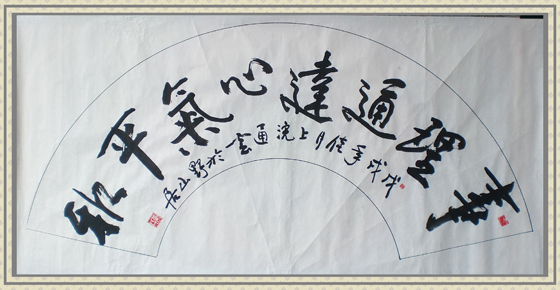 事理通達心氣平和
戊戌季佳月上浣通雲於野山居